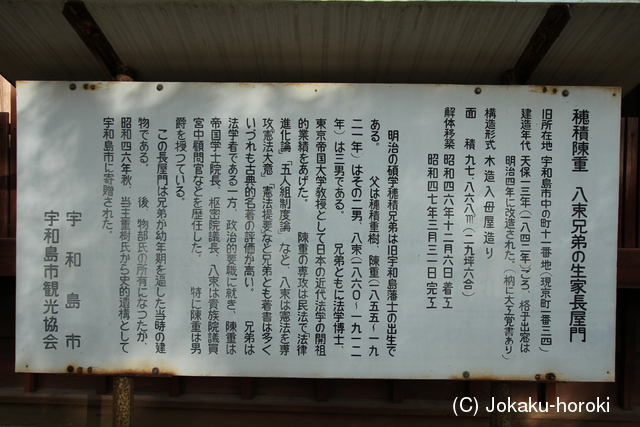 穂積陳重 八束兄弟の生家長屋門
旧所在地 宇和島市中の町十一番地(現京町一番三四)
建造年代 天保一三年(一八四二年)ごろ、格子出窓は
明治四年に改造された。(枘に大工覚書あり)
構造形式 木造入母屋造り
面積 九七、八六八㎡(二九坪六合)
解体移築 昭和四六年十二月六日着工
昭和四七年三月二一日完工
明治の碩学穂積兄弟は旧宇和島藩士の出生で
ある。 父は穂積重樹、陳重(一八五五~一九
二一年)はその二男、八束(一八六〇~一九一二
年)は三男である。 兄弟ともに法学博士、
東京帝国大学教授として日本の近代法学の開祖
的業績をあげた。 陳重の専攻は民法で「法律
進化論」「五人組制度論」など、八束は憲法を専
攻「憲法大意」「憲法提要」など兄弟とも著書は多く
いづれも古典的名著の評価が高い。 兄弟は
法学者である一方、政治的要職に就き、陳重は
帝国学士院長、枢密院議長、八束は貴族院議員
宮中顧問官などを歴任した。 特に陳重は男
爵を授っている。
この長屋門は兄弟が幼年期を過した当時の建
物である。 後、物部氏の所有になつたが、
昭和四六年秋、当主重樹氏から史的遺構として
宇和島市に寄贈された。
宇和島市
宇和島市観光協会
(C) Jokaku-horoki